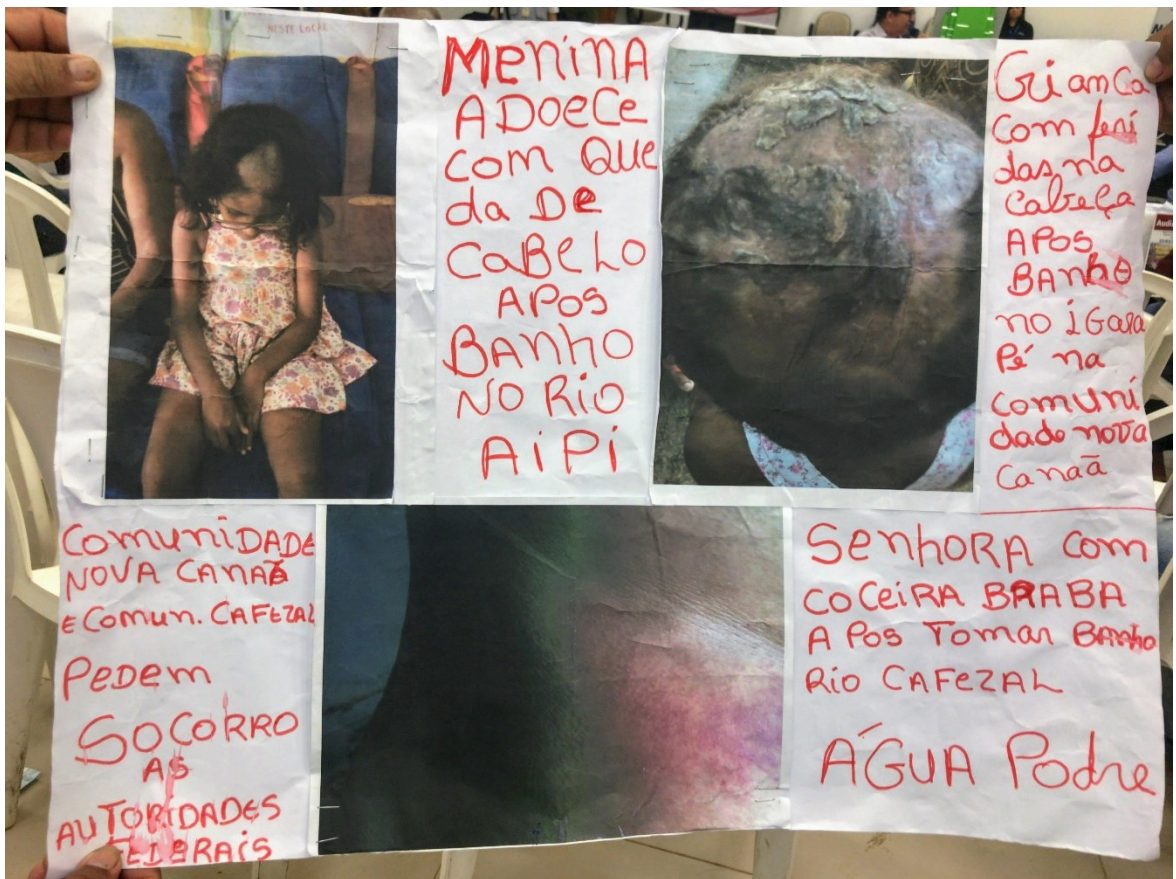 NESTE LOCAL
MENINA
ADOECE
COM QUE
da DE
CABELO
APOS
BANHO
NO RIO
AiPi
CriamCa
com feri
das na
Cabeça
APOS
BANHO
no iGara
Pé na
comuni
dade nova
Canaã
COMUNIDADE
NOVA CANAÃ
E COMUN. CAFEZAL
PEDEM
SOCORRO
AS
AUTORIDADES
FEDERAIS
SENHORA COM
COCEIRA BRABA
A POS TOMAR BANHO
RIO CAFEZAL
ÁGUA Podre